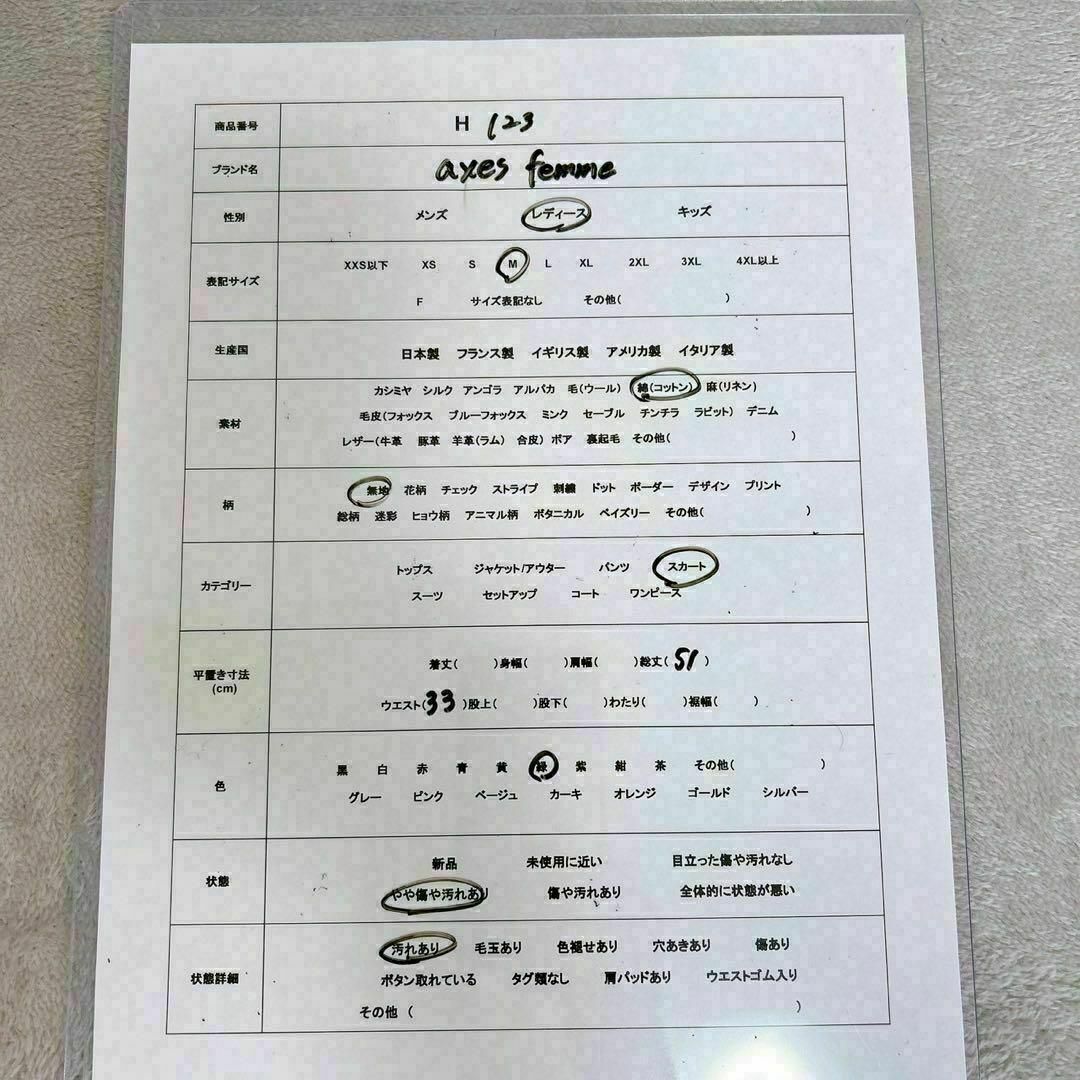 商品番号 H 123
ブランド名 axes femme
性別 メンズ レディース キッズ
表記サイズ XXS以下 XS S M L XL 2XL 3XL 4XL以上
F サイズ表記なし その他( )
生産国 日本製 フランス製 イギリス製 アメリカ製 イタリア製
カシミヤ シルク アンゴラ アルパカ 毛(ウール) 綿(コットン) 麻(リネン)
素材 毛皮(フォックス ブルーフォックス ミンク セーブル チンチラ ラビット) デニム
レザー(牛革 豚革 羊革(ラム) 合皮) ボア 裏起毛 その他( )
柄 無地 花柄 チェック ストライプ 刺繍 ドット ボーダー デザイン プリント
総柄 迷彩 ヒョウ柄 アニマル柄 ボタニカル ペイズリー その他( )
カテゴリー トップス ジャケット/アウター パンツ スカート
スーツ セットアップ コート ワンピース
平置き寸法 着丈( )身幅( )肩幅( )総丈( 51 )
(cm) ウエスト( 33 )股上( )股下( )わたり( )裾幅( )
色 黒 白 赤 青 黄 緑 紫 紺 茶 その他( )
グレー ピンク ベージュ カーキ オレンジ ゴールド シルバー
状態 新品 未使用に近い 目立った傷や汚れなし
やや傷や汚れあり 傷や汚れあり 全体的に状態が悪い
状態詳細 汚れあり 毛玉あり 色褪せあり 穴あきあり 傷あり
ボタン取れている タグ類なし 肩パッドあり ウエストゴム入り
その他 ( )